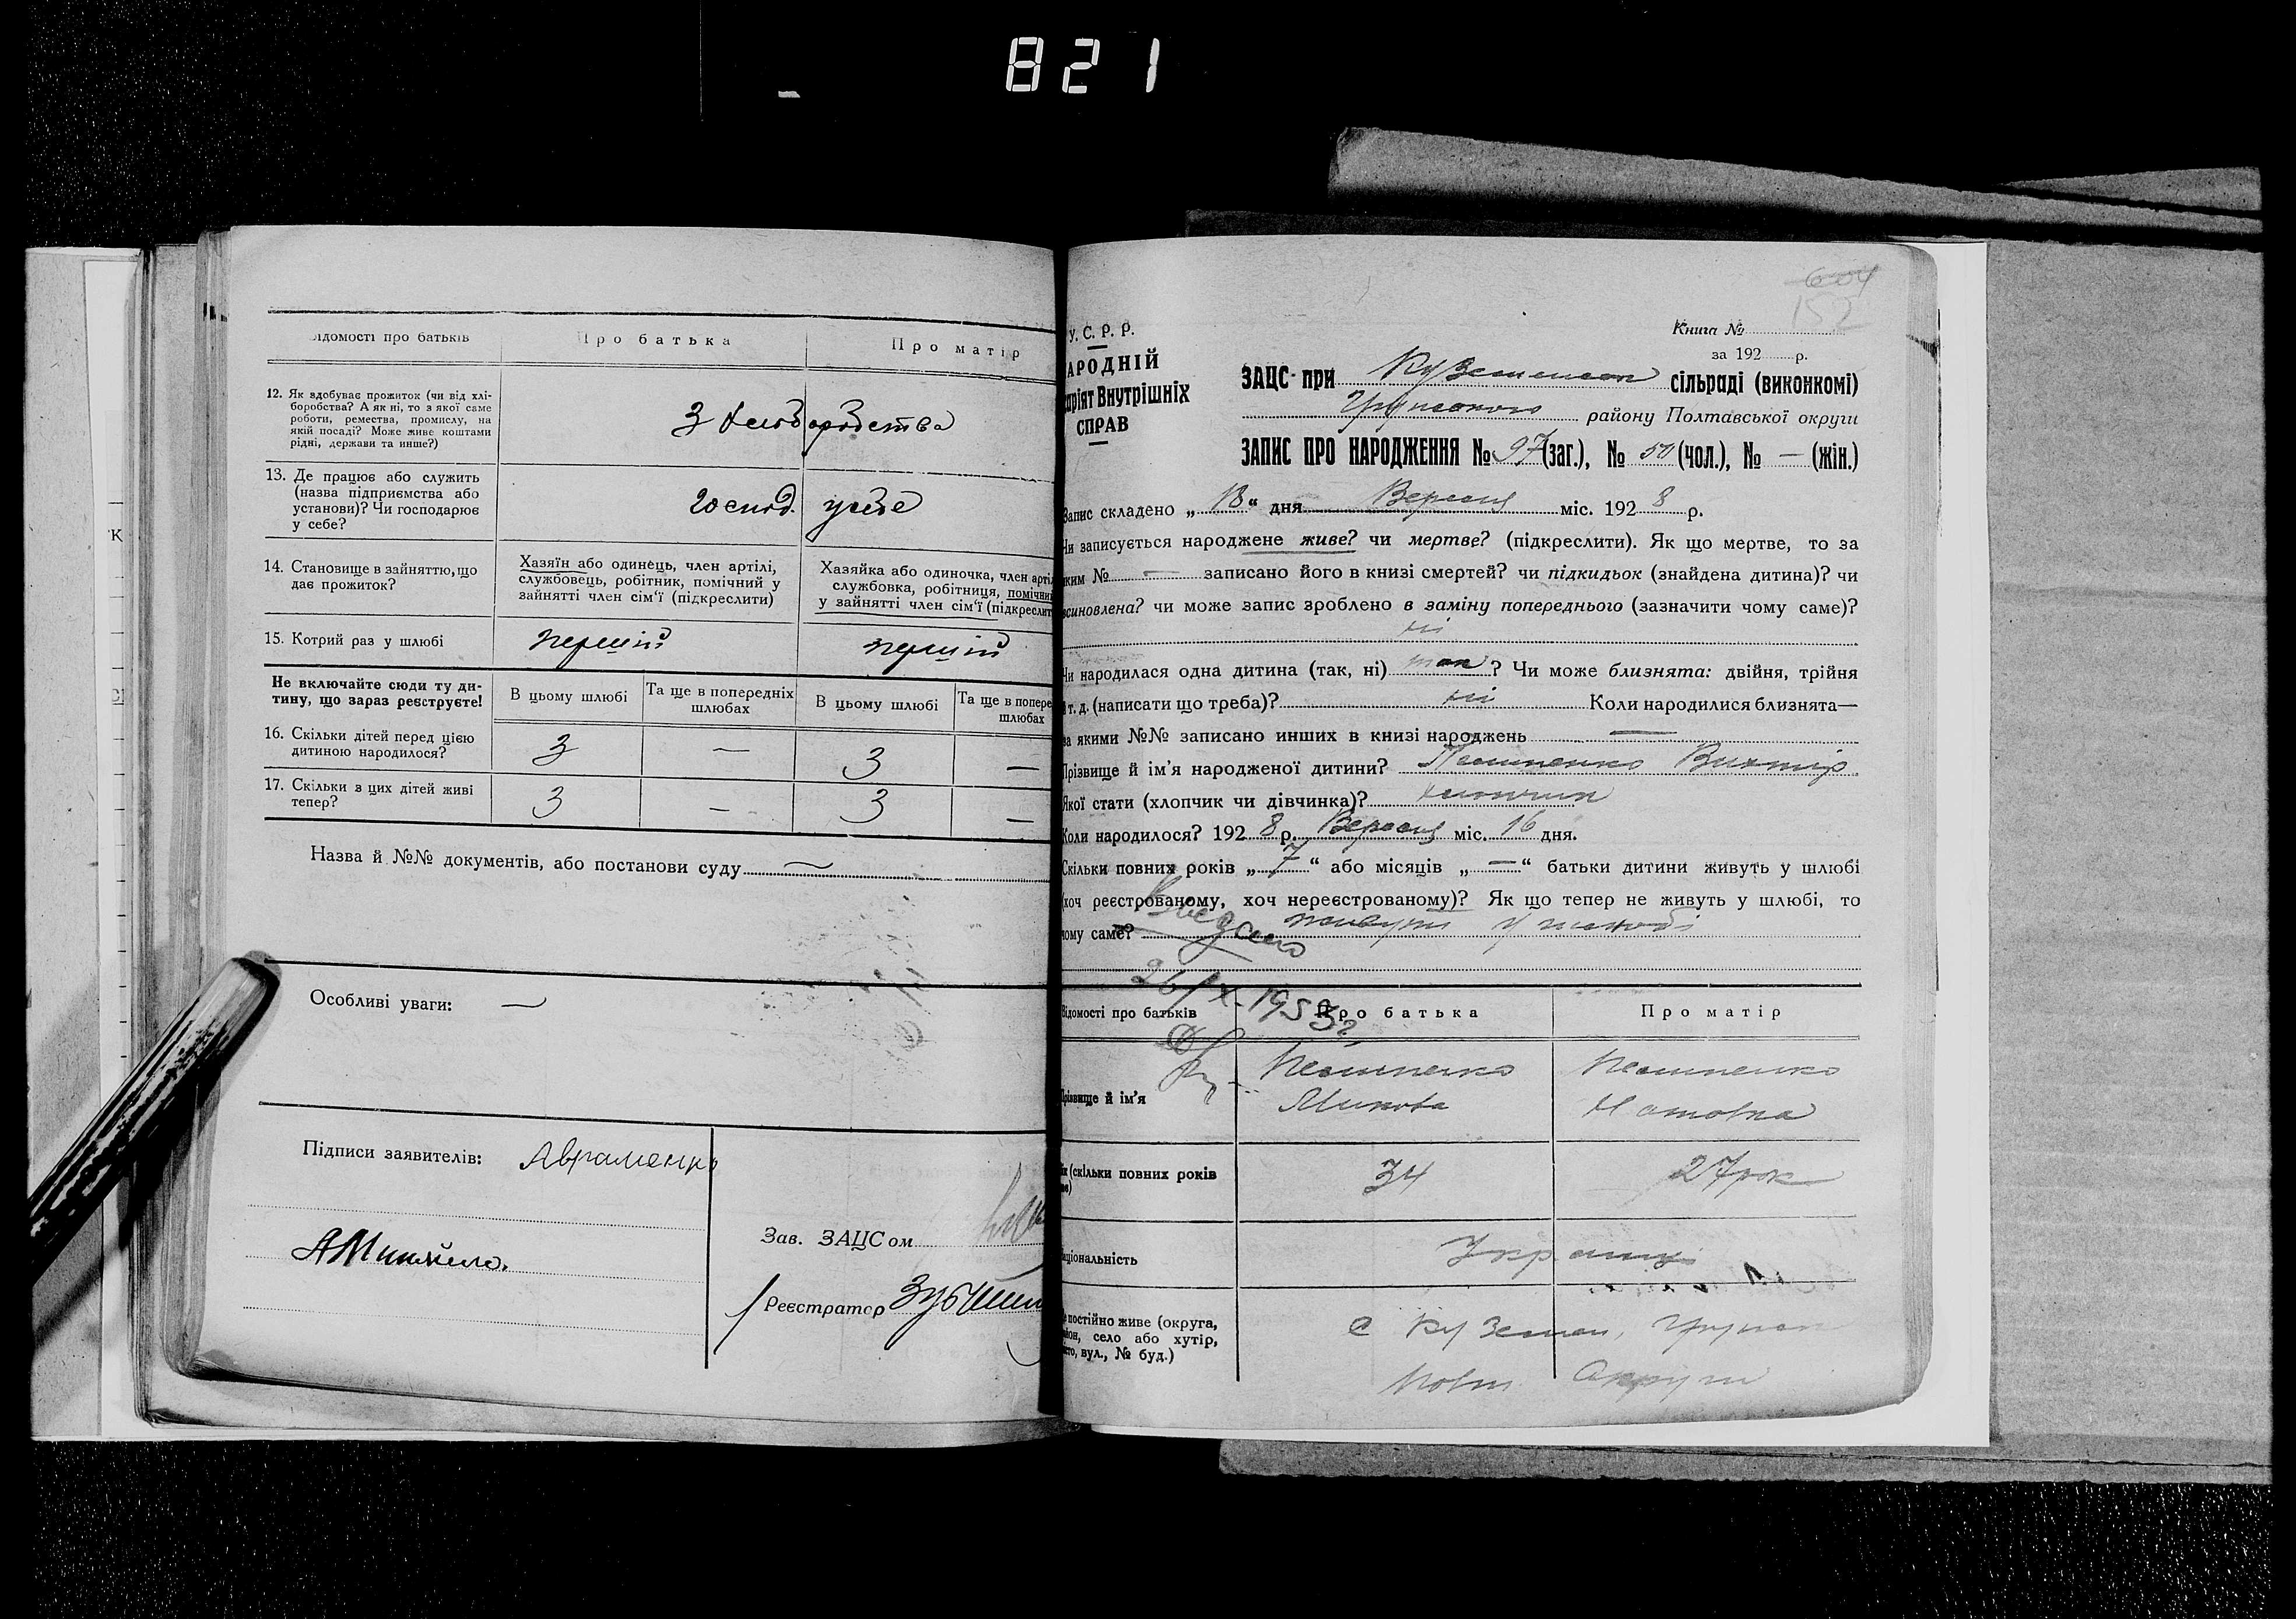 821
Відомості про батьків
Про батька
Про матір
12. Як здобуває прожиток (чи від хлі-
боробства? А як ні, то з якої саме
роботи, ремества, промислу, на
якій посаді? Може живе коштами
рідні, держави та инше?)
З хліборобства
13. Де працює або служить
(назва підприємства або
установи)? Чи господарює
у себе?
Господ. у себе
14. Становище в зайняттю, що
дає прожиток?
Хазяїн або одинець, член артілі,
службовець, робітник, помічний у
зайнятті член сім'ї (підкреслити)
Хазяйка або одиночка, член артіл
службовка, робітниця, помічни
у зайнятті член сім'ї (підкреслит
15. Котрий раз у шлюбі
перший
перший
Не включайте сюди ту ди-
тину, що зараз реєструєте!
В цьому шлюбі
Та ще в попередніх
шлюбах
В цьому шлюбі
Та ще в попере
шлюбах
16. Скільки дітей перед цією
дитиною народилося?
3 — 3 —
17. Скільки з цих дітей живі
тепер?
3 — 3 —
Назва й №№ документів, або постанови суду —
Особливі уваги: —
Підписи заявителів: Авраменко
Зав. ЗАЦСом
Реєстратор
604
152
У. С. Р. Р.
АРОДНІЙ
аріят Внутрішніх
СПРАВ
Книга №
за 192 р.
ЗАЦС при сільраді (виконкомі)
Грунського району Полтавської округи
ЗАПИС ПРО НАРОДЖЕННЯ № 97 (заг.), № 50 (чол.), № — (жін.)
Запис складено „18“ дня Вересня міс. 1928 р.
Чи записується народжене живе? чи мертве? (підкреслити). Як що мертве, то за
яким № — записано його в книзі смертей? чи підкидьок (знайдена дитина)? чи
всиновлена? чи може запис зроблено в заміну попереднього (зазначити чому саме)?
ні
Чи народилася одна дитина (так, ні) так? Чи може близнята: двійня, трійня
і т. д. (написати що треба)? ні Коли народилися близнята—
за якими №№ записано инших в книзі народжень —
Прізвище й ім'я народженої дитини? Віхтір
Якої стати (хлопчик чи дівчинка)? хлопчик
Коли народилося? 1928 р. Вересня міс. 16 дня.
Скільки повних років „7“ або місяців „—“ батьки дитини живуть у шлюбі
(хоч реєстрованому, хоч нереєстрованому)? Як що тепер не живуть у шлюбі, то
чому саме? живуть у шлюбі
26/X-1953г.
Відомості про батьків
Про батька
Про матір
Прізвище й ім'я
Микола
(скільки повних років
34
27 рок
аціональність
Україниц
постійно живе (округа,
айон, село або хутір,
сто, вул., № буд.)
Округи